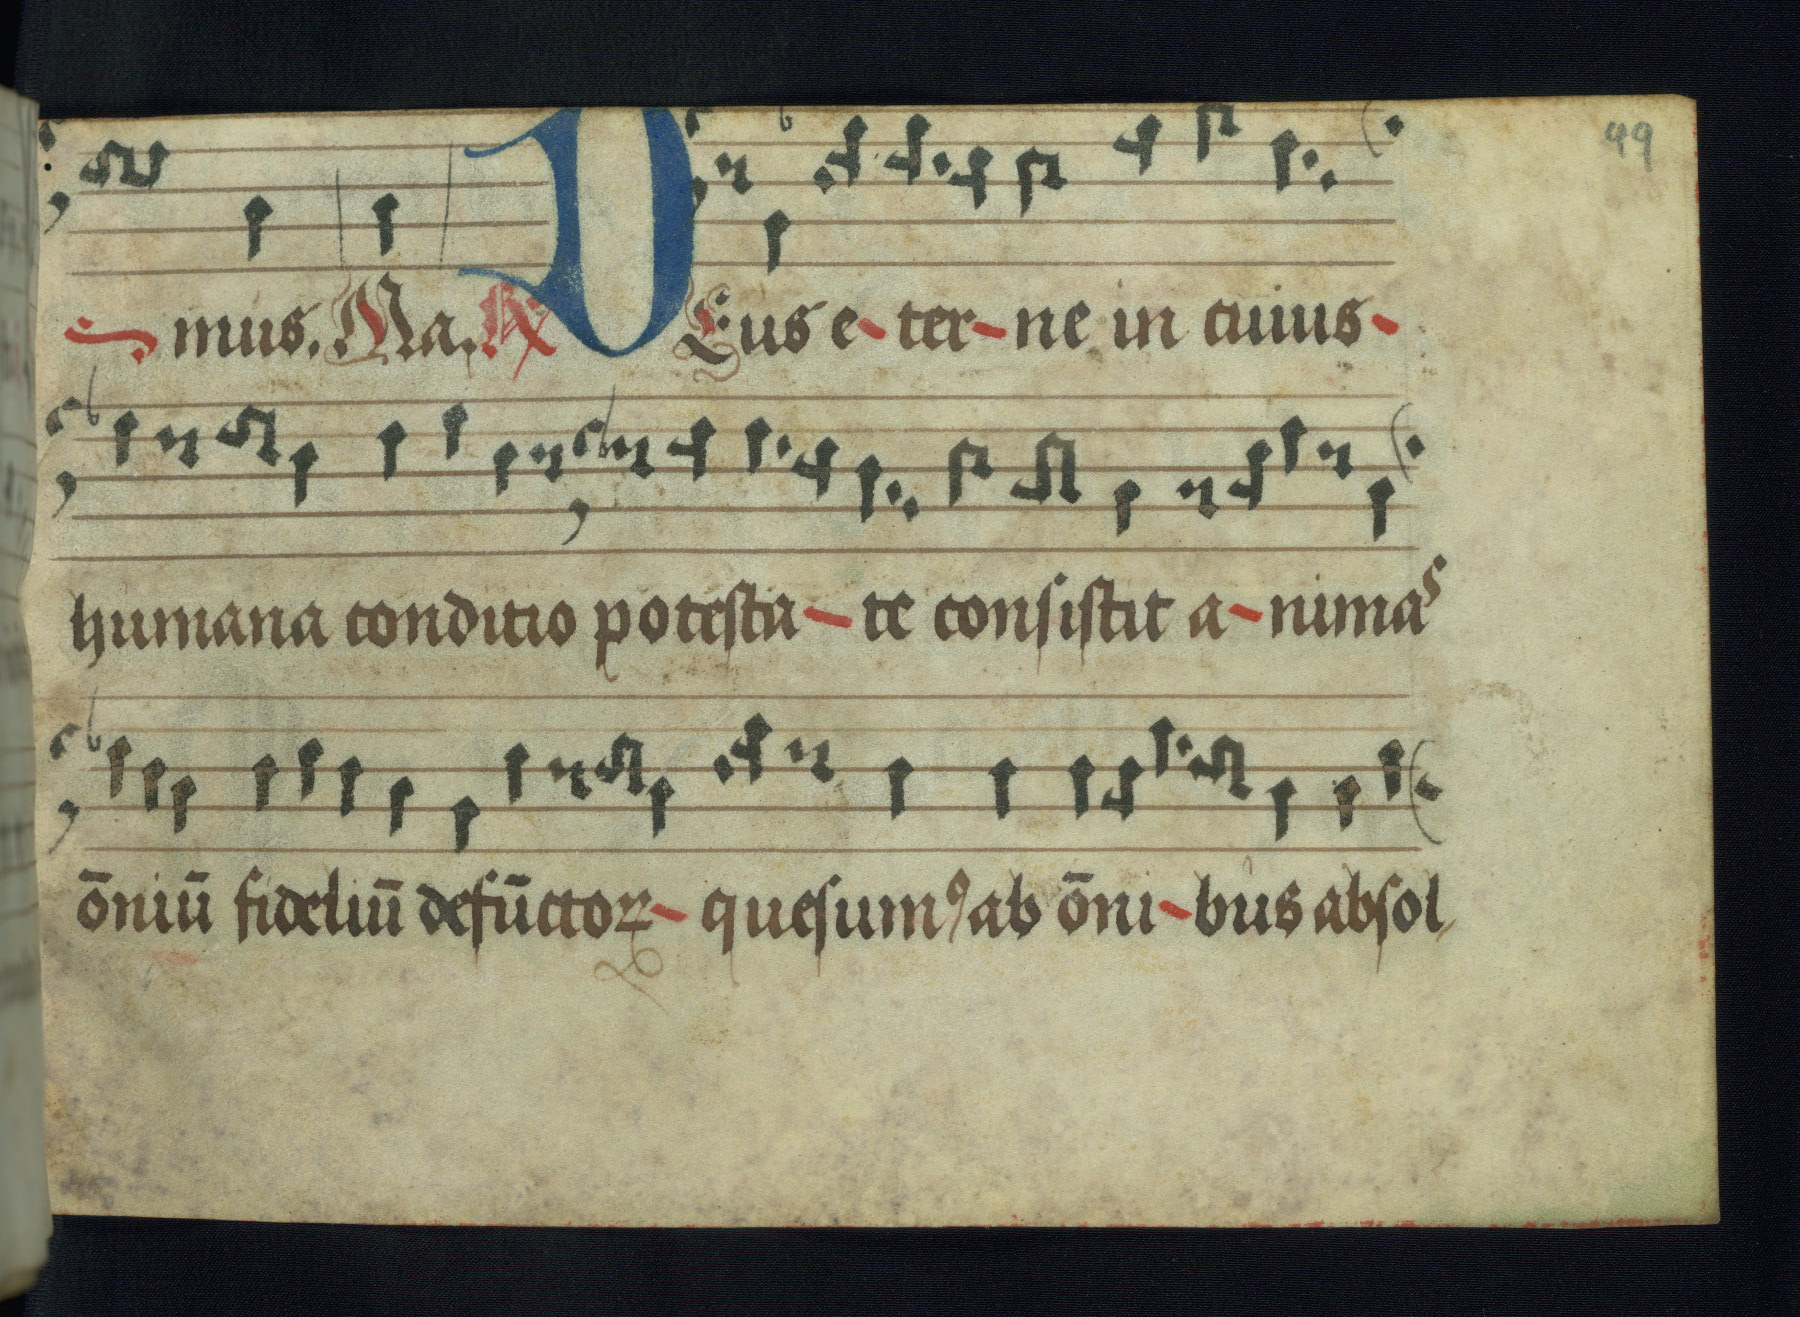 49
mus. Na. ℟ DEus e-ter-ne in cuius-
humana conditio potesta-te consistit a-nimas
om̄niū fideliū defūctoꝝ- quesumꝰ ab ōni-bus absol